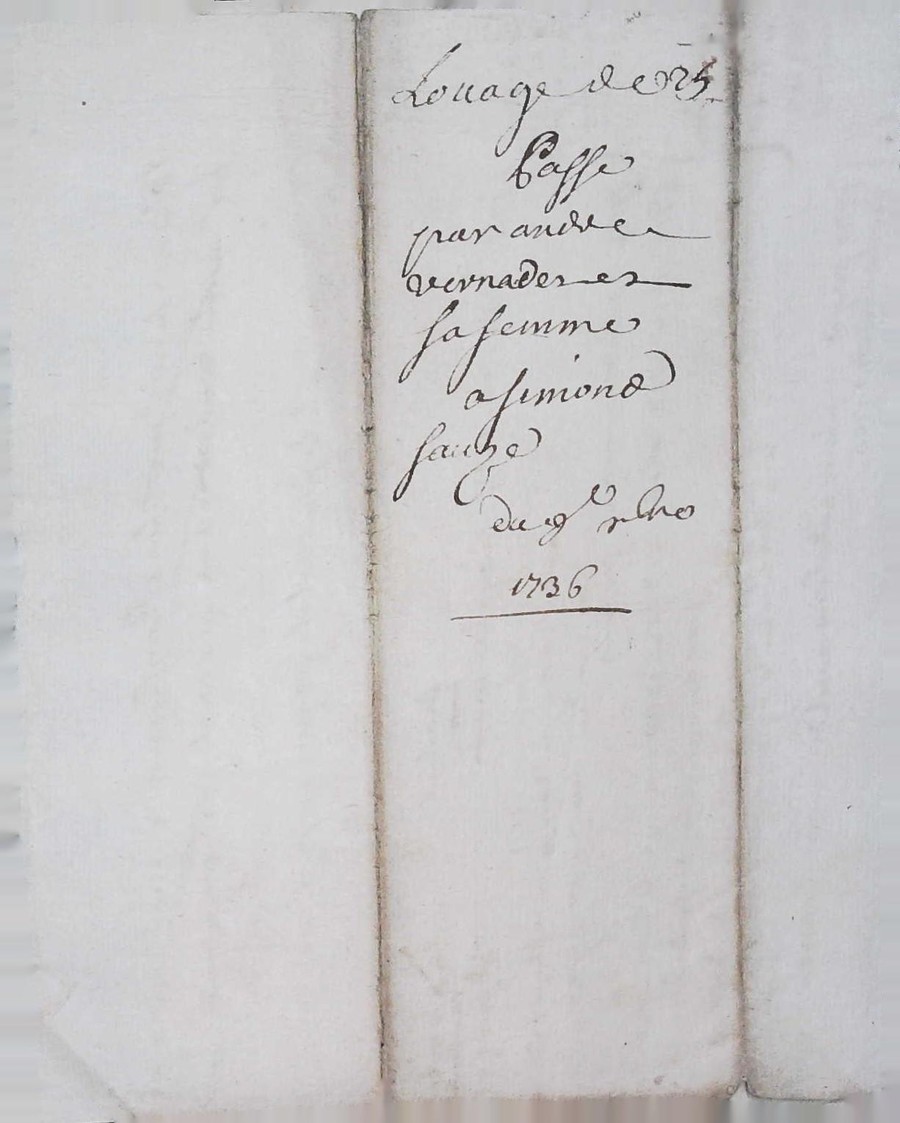 Louage de 25
Passe
par andre
vernades et
sa femme
a simond
sauze
du 9e xbre
1736